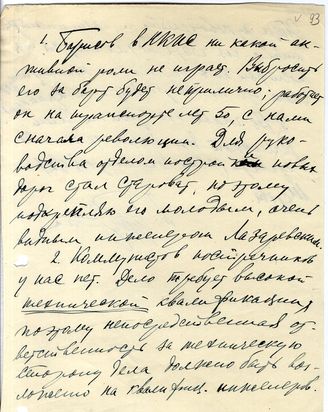 √ 93
1. Борисов в НКПС ни какой ак-
тивной роли не играет. Выбросить
его за борт будет неприлично: работает
он на транспорте лет 50, с нами
сначала революции. Для руко-
водства отделом постройки новых
дорог стал староват, поэтому
подкрепляю его молодым, очень
видным инженером Лазаревским.
2. Коммунистов построечников
у нас нет. Дело требует высокой
технической квалификации,
поэтому непосредственная от-
ветственность за техническую
сторону дела должно быть воз-
ложено на квалифиц. инженеров.